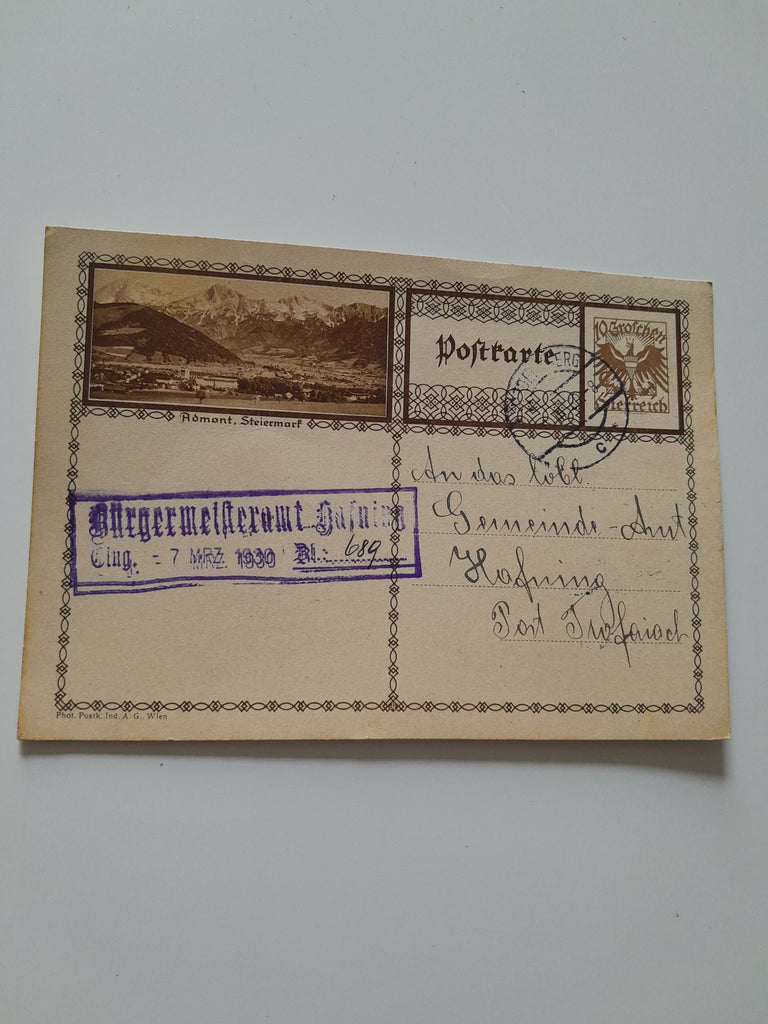 Admont, Steiermark
Postkarte
10 Groschen
Österreich
C
An das löbl.
Gemeinde-Amt
Hafning
Post Trofaiach
Bürgermeisteramt Hafning
Eing. - 7 MRZ. 1930 Bl.: 689
Phot. Postk. Ind. A. G., Wien